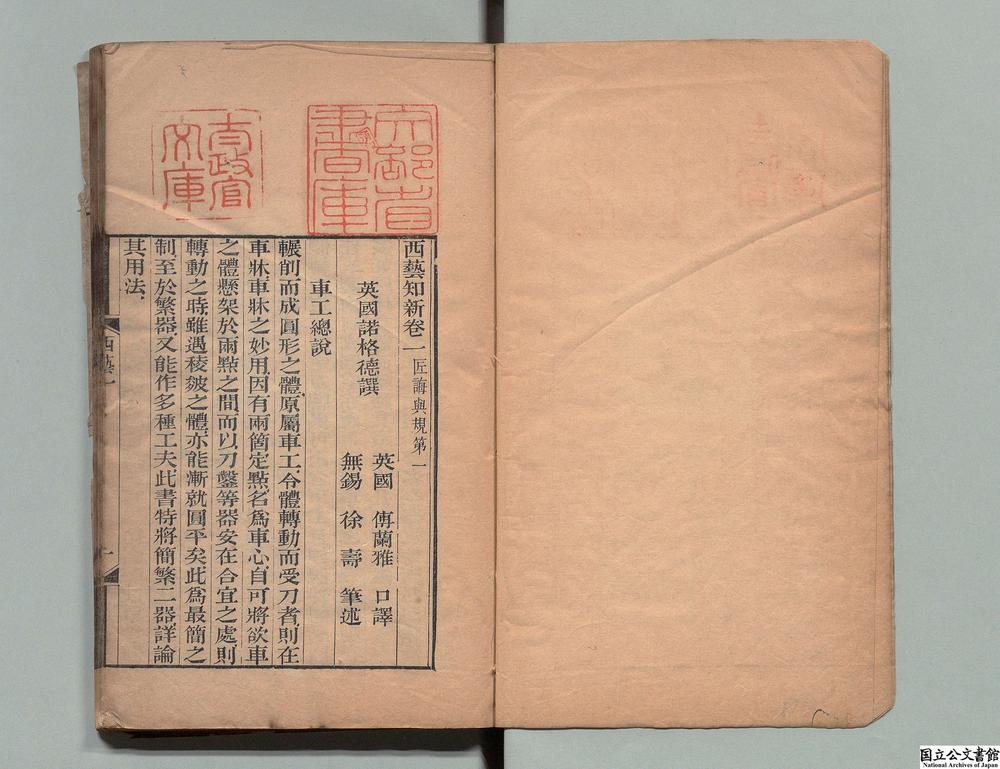 大政官
文庫
內務省
圖書庫
西藝知新卷一 匠誨與規第一
英國諾格德譔
英國 傅蘭雅 口譯
無錫 徐 壽 筆述
車工總說
輾削而成圓形之體、原屬車工、令體轉動而受刀者、則在
車牀、車牀之妙用、因有兩箇定點、名爲車心、自可將欲車
之體懸架於兩點之間、而以刀鑿等器安在合宜之處、則
轉動之時、雖遇稜皴之體、亦能漸就圓平矣、此爲最簡之
制、至於繁器、又能作多種工夫、此書特將簡繁二器、詳論
其用法、
西藝一
一
国立公文書館
National Archives of Japan